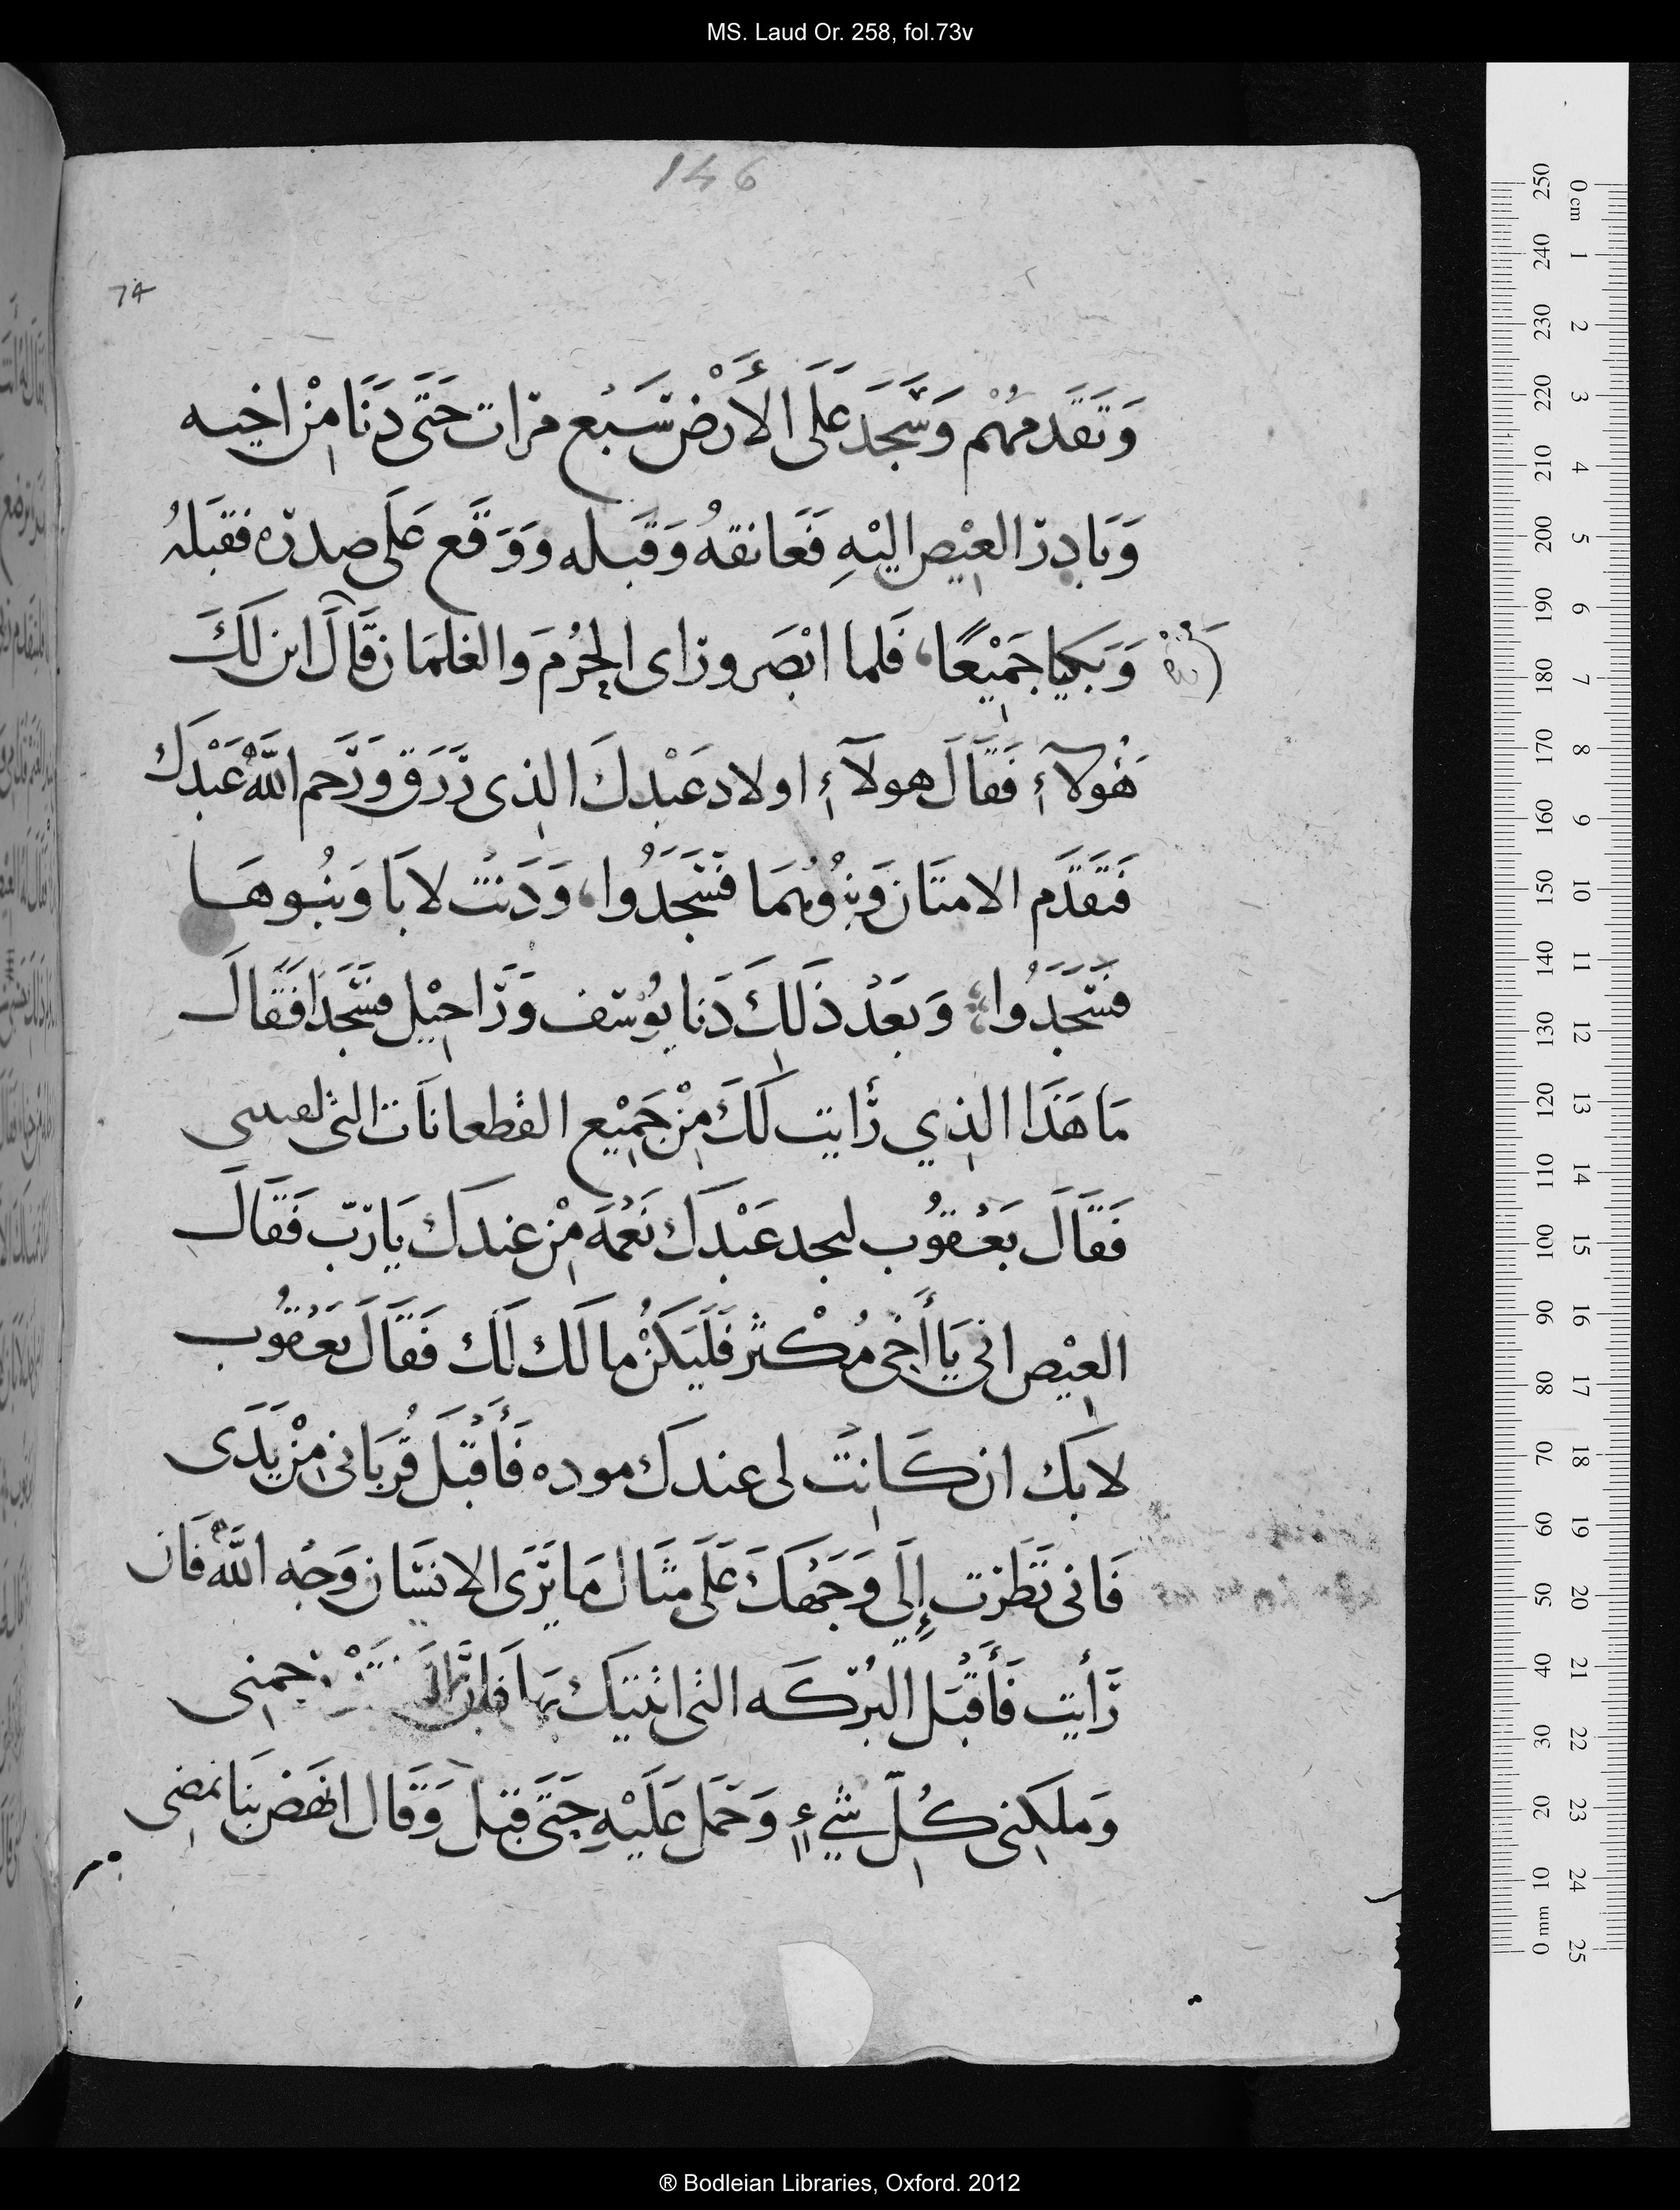 MS. Laud Or. 258, fol.73v
146
74
وَتَقَدمهُمْ وَسَّجَدَ عَلَى الأَرْض سَبْع مرات حَتَّى دَنَا مِنْ اخيه
وَبَادِر العِيْص اليْهِ فَعَانقهُ وَقَبله وَوَقَع عَلَى صدره فقبلهُ
وَبَكيا جَمِيْعًا، فَلما ابْصَر وراى الحُرُمَ وَالغلمَان قَالَ اين لَكَ
هُولآء فَقَالَ هولآء اولاد عَبْدكَ الذى رَزَق وَرَّحم اللَّهُ عَبْدَك
فَتقَدَّم الامتَان وَبنُوُهمَا فَسَّجَدُوا، وَدَنت لابَا وَبنُوهَا
فسَّجَدُوا، وَبَعَدْ ذَلِكَ دَنا يوُسف وَرَّاحِيْل فسَّجَدَا فَقَالَ
مَا هَذَا الذِي رَّايت لَكَ مِنْ جَمِيْع القطعانَات التى
فَقَالَ يَعْقُوُب ليجد عَبْدَك نَعْمَة مِنْ عندكَ يَا رَبّ فَقَالَ
العِيْص انى يَا أَخى مُكْثر فَلَيَكُنْ ما لَك لَكَ فَقَالَ يَعْقُوُب
لابَك ان كَانِتْ لى عندكَ موده فَأَقْبَل قُربَانى مِنْ يَدَى
فَانى نَظَرْت إِلَى وَجَهْكَ عَلَى مثَال مَا يَرَى الانسَان وَجْه اللَّهُ فَان
رَّأيت فَأَقْبَل البُرّكَه التى اتيتك بهَا فَان اللَه رحمنى
وَملكِنى كُلّ شىءٍ وَحَمَل عَلَيْهِ حَتَّى قبل وَقَال انهَض بنَا نمضِى
0 cm 1 2 3 4 5 6 7 8 9 10 11 12 13 14 15 16 17 18 19 20 21 22 23 24 25
250 240 230 220 210 200 190 180 170 160 150 140 130 120 110 100 90 80 70 60 50 40 30 20 10 0 mm
® Bodleian Libraries, Oxford. 2012